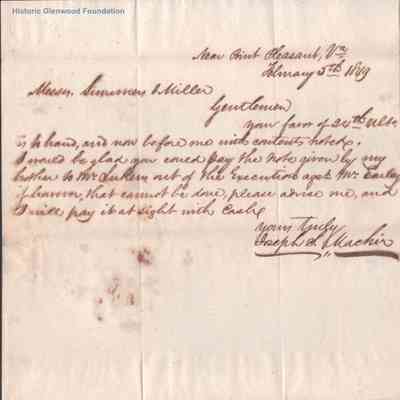 Historic Glenwood Foundation
Near Point Pleasant, Va
February 5th 1849
Messrs. Summers & Miller
Gentlemen
Your favor of 24th Ulto
is to hand, and now before me with contents noted.
I would be glad you could pay the note given by my
brother to Mr. out of the Execution agst Mr. Earley
if however, that cannot be done, please advise me, and
I will pay it at sight with Cash
Yours Truly
Joseph S. Machir